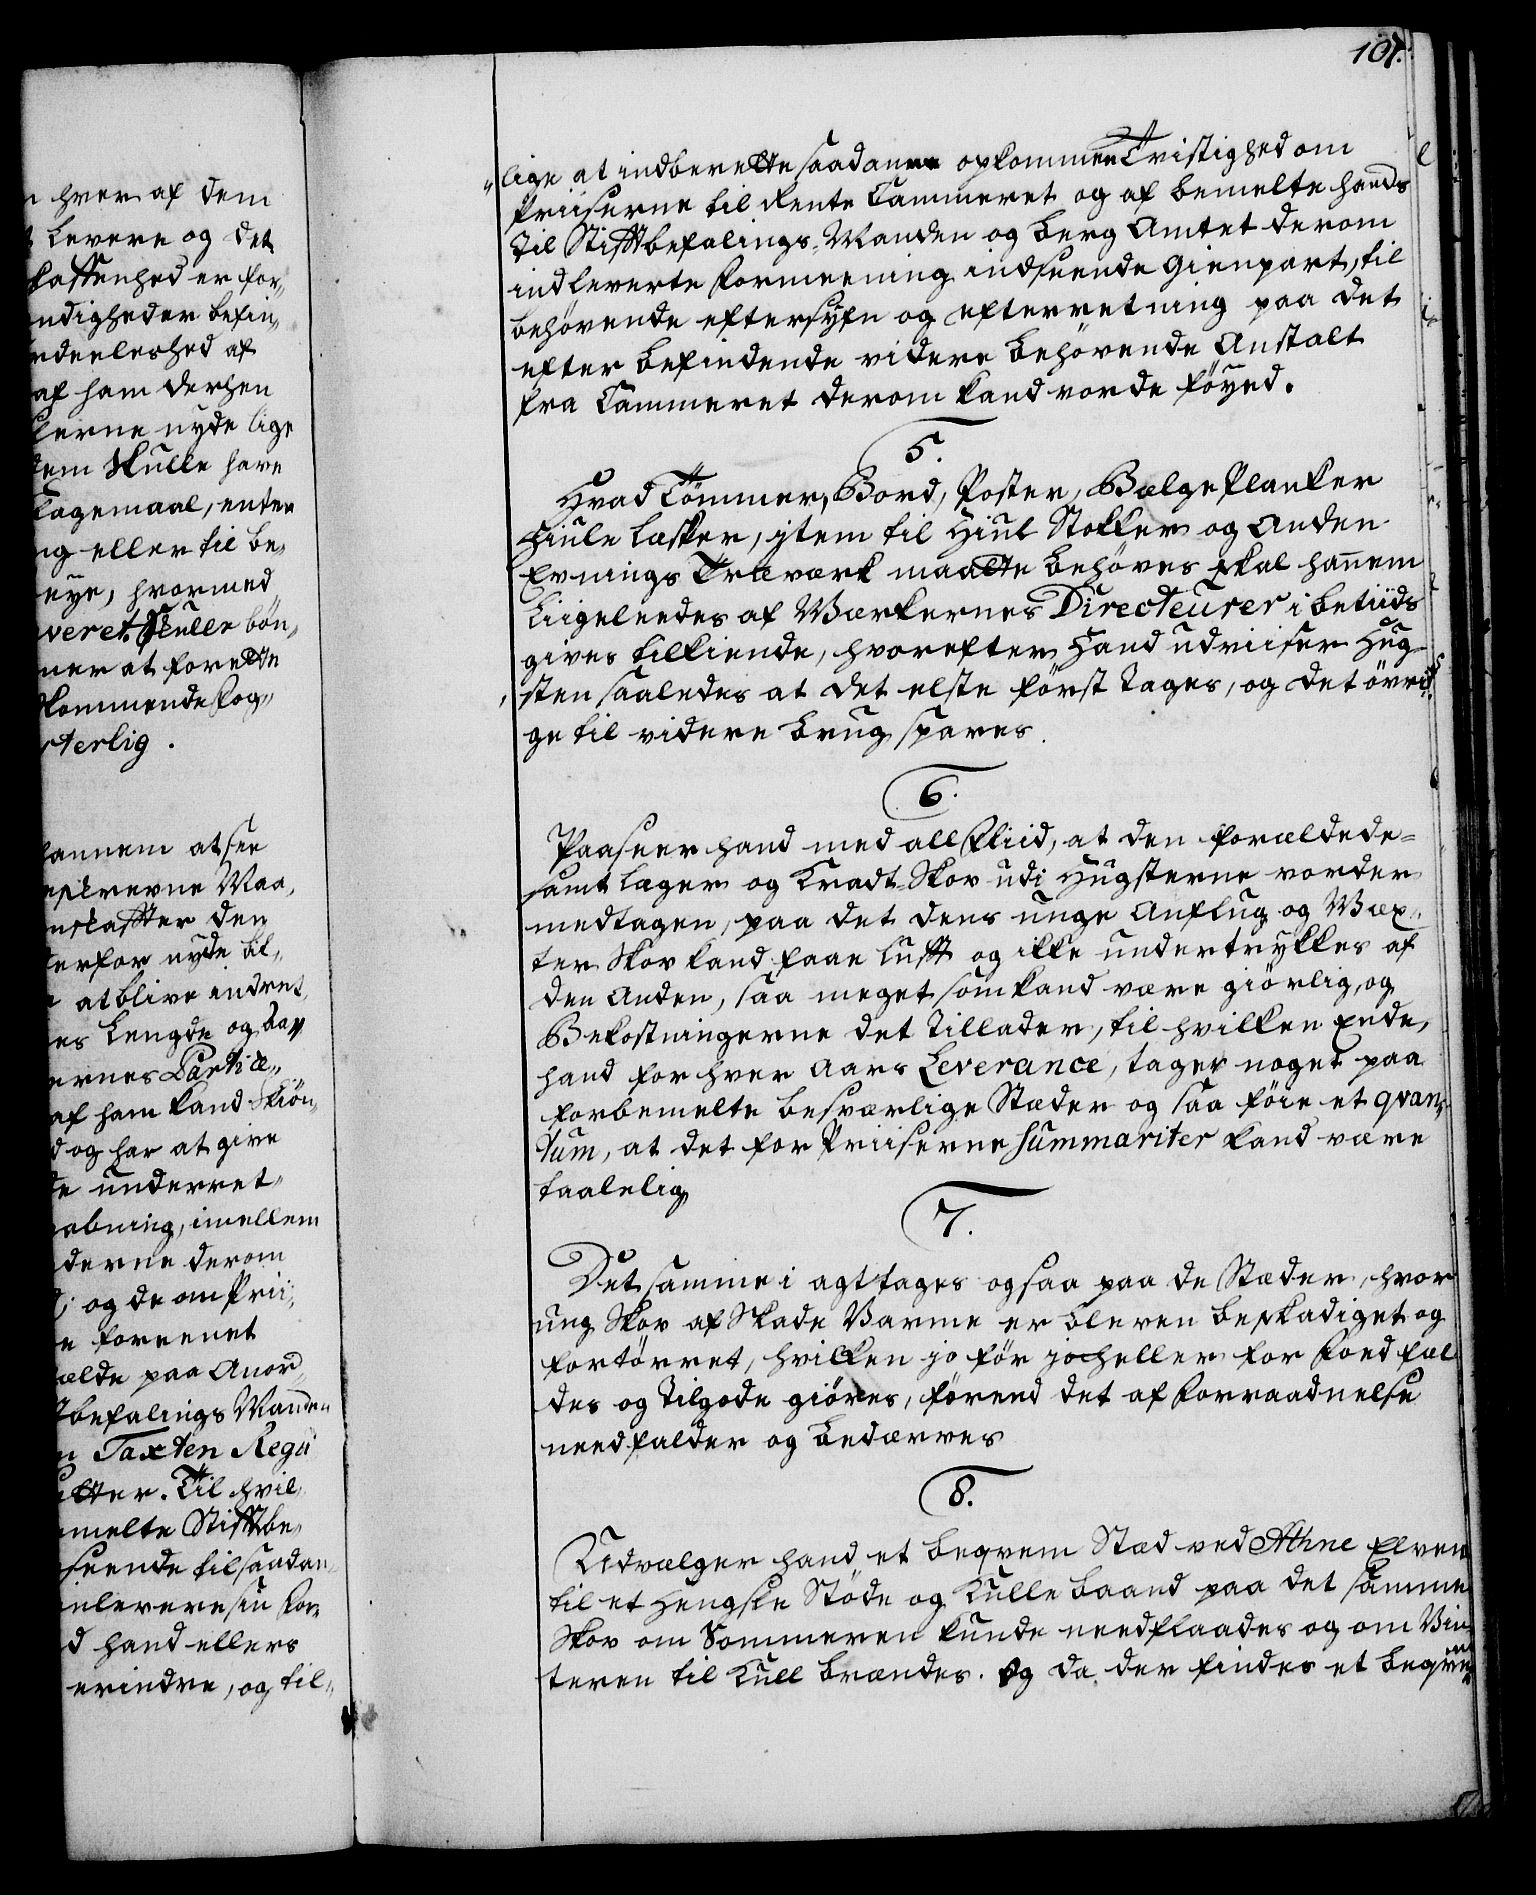 107.
hver af dem
levere og det
kaffenhed er for„
ndigheder befin„
rdeeleshed af
af ham derhen
lerne nyde lige
dem skulle have
lagemaal, enten
ng eller til be„
nye, hvormed
veret skulle bön„
ner at forrette
kommende fog„
rterlig.
hannem at see
eskrevne Maa„
nskaffter den
derfor nyde til„
at blive indret„
es Lengde og
ernes Partie„
af ham kand skiön„
d og har at give
de underret„
abning, imellem
derne derom
og de om Prii„
e foreenet
ælde paa Anor„
tbefalings Manden
n Taxten Regu
etter. Til hvil„
melte Stifftbe„
seende til saadan„
inlevere sin for„
d hand ellers
erindre, og til„
„lige at indberette saadanne opkommen Tvistighed om
Priiserne til Rente Cammeret og af bemelte hands
til Stifftbefalings-Manden og Berg Amtet derom
indleverte formeening indsende Gienpart, til
behövende eftersyn og efterretning paa det
efter befindende videre behövende Anstalt
fra Cammeret derom kand vorde föyed.
5.
Hvad Tömmer, Bord, Poster, Bælge Planker
Hiule læsker, jtem til Hiul Stokker og Anden
Evnings Træverk maatte behöves skal hannem
Liigeleedes af Værkernes Directeurer i betiids
gives tilkiende, hvorefter Hand udviiser Hug„
sten saaledes at det elste först tages, og det övri„
ge til videre brug spares.
6.
Paaseer hand med all Fliid, at den forældede-
samt lager og Kradt-Skov udi Hugsterne vorder
medtagen, paa det dens unge Anflug og Wæx„
ter Skov kand faae lufft og ikke undertrykkes af
den Anden, saa meget som kand være giörlig, og
Bekostningerne det tillader, til hvilken Ende,
hand for hver Aars Leverance, tager noget paa
forbemelte besværlige Stæder og saa föie et qvan„
tum, at det for Priiserne summariter kand være
taalelig
7.
Det samme i agttages ogsaa paa de Stæder, hvor
ung Skov af Skade Varme er bleven beskadiget og
fortörret, hvilken jo för jo heller for Foed fæl
des og Tilgode giöres, förend det af forraadnelse
needfalder og bedærves
8.
Udvælger hand et beqvem Stæd ved Athne Elven
til et Hengsle Stöde og Kulle baand paa det samme
Skov om Sommeren kunde needflaades og om Vin„
teren til Kull brændes. Og da der findes et beqvem